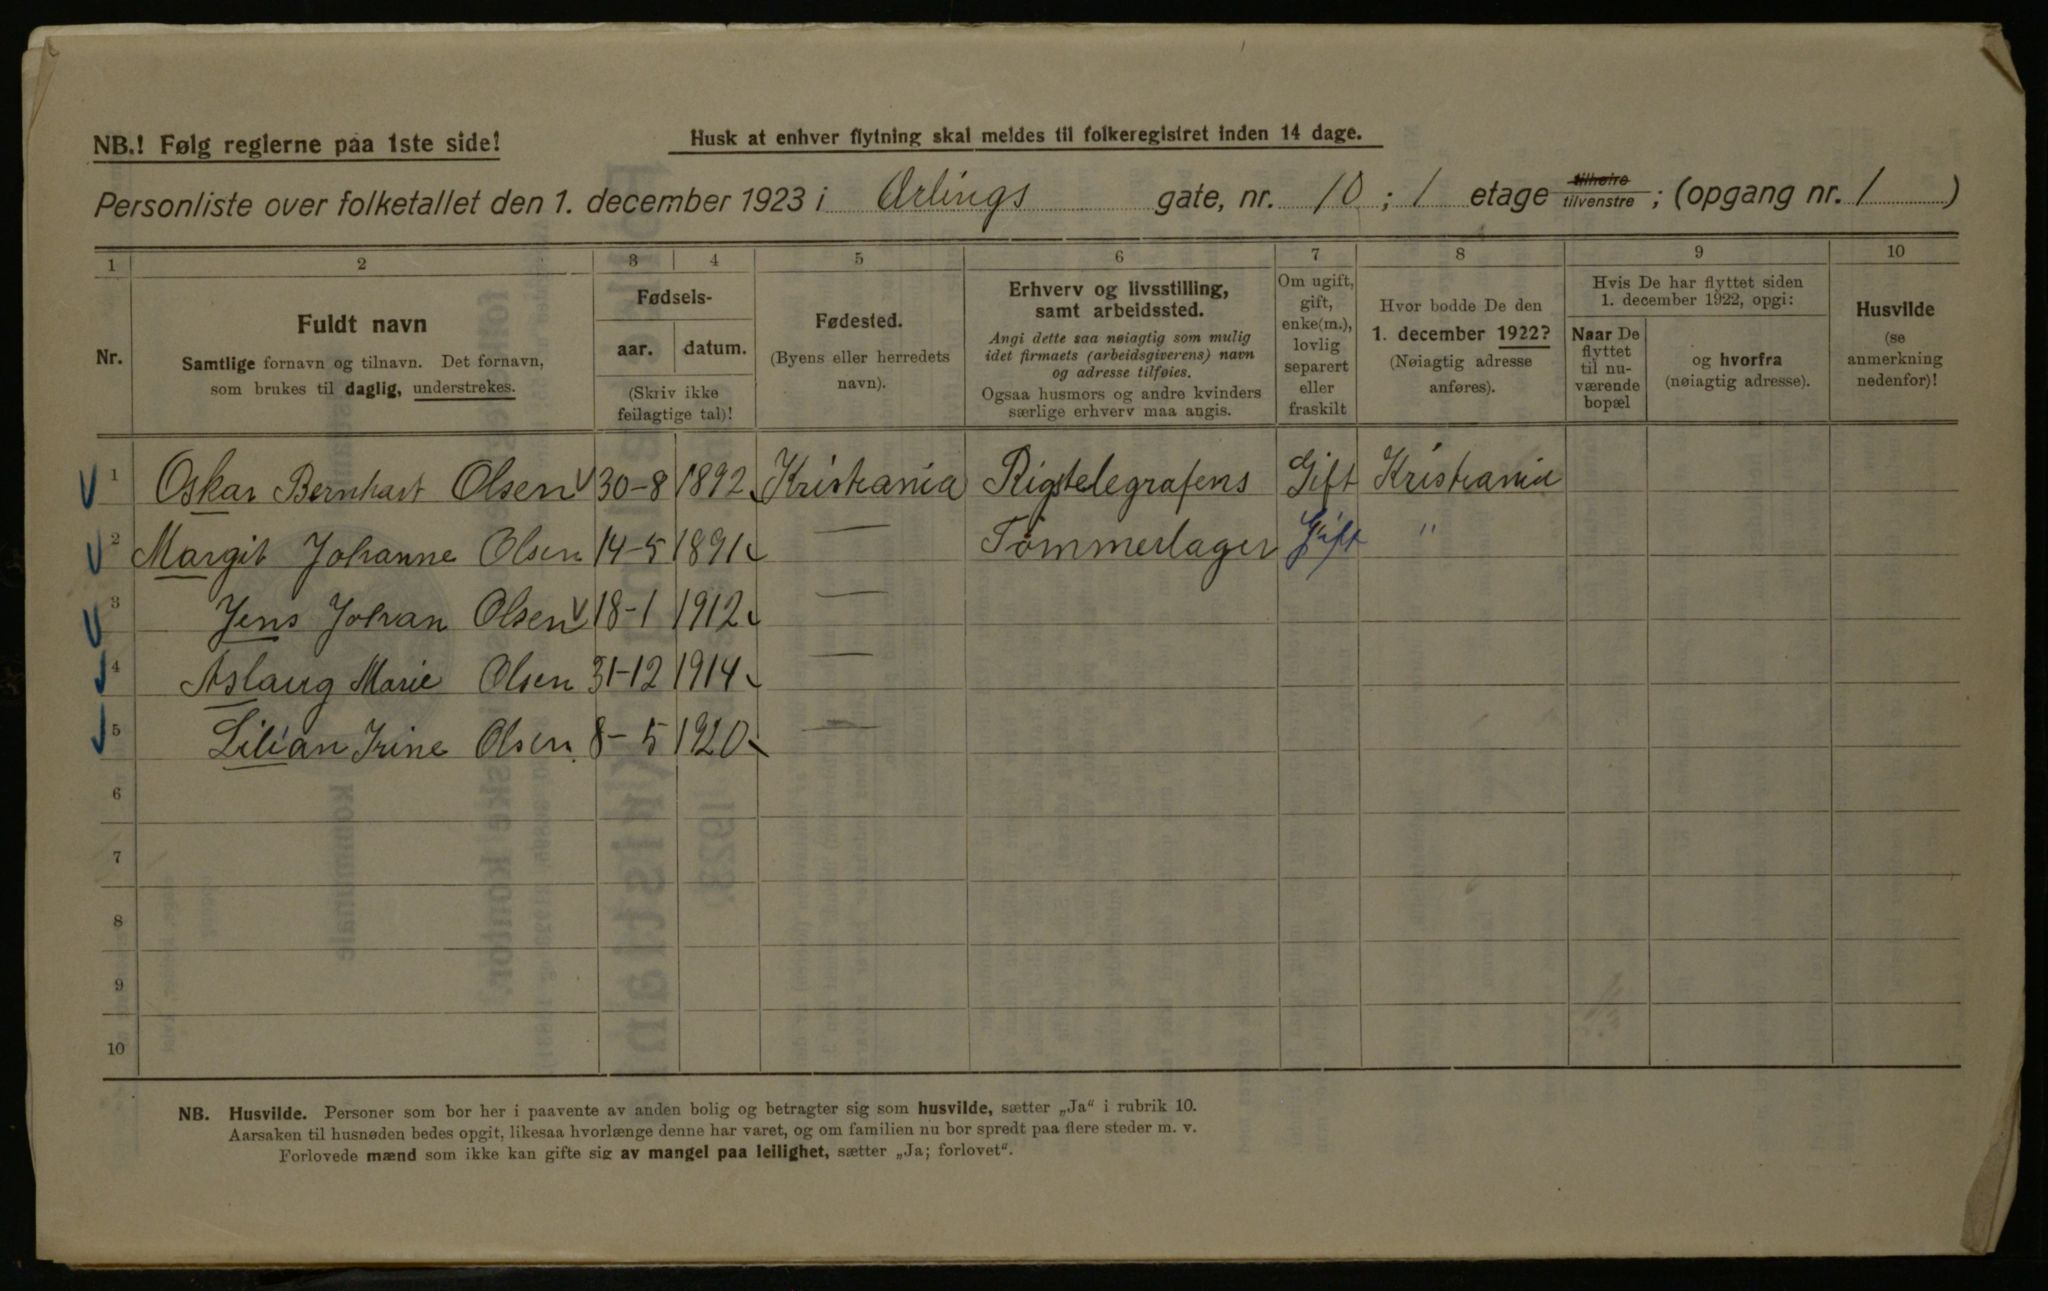 NB.! Følg reglerne paa 1ste side!
Husk at enhver flytning skal meldes til folkeregistret inden 14 dage.
Personliste over folketallet den 1. december 1923 i Orlings gate, nr. 10 ; 1 etage tilhøire tilvenstre ; (opgang nr. 1 )
1 2 3 4 5 6 7 8 9 10
Nr.
Fuldt navn
Samtlige fornavn og tilnavn. Det fornavn,
som brukes til daglig, understrekes.
Fødsels-
aar. datum.
(Skriv ikke
feilagtige tal)!
Fødested.
(Byens eller herredets
navn).
Erhverv og livsstilling,
samt arbeidssted.
Angi dette saa nøiagtig som mulig
idet firmaets (arbeidsgiverens) navn
og adresse tilføies.
Ogsaa husmors og andre kvinders
særlige erhverv maa angis.
Om ugift,
gift,
enke(m.),
lovlig
separert
eller
fraskilt
Hvor bodde De den
1. december 1922?
(Nøiagtig adresse
anføres).
Hvis De har flyttet siden
1. december 1922, opgi:
Naar De
flyttet
til nu-
værende
bopæl
og hvorfra
(nøiagtig adresse).
Husvilde
(se
anmerkning
nedenfor)!
1 Oskar Bernhart Olsen 30-8 1892 Kristiania Rigstelegrafens Gift Kristiania
2 Margit Johanne Olsen 14-5 1891 — Tømmerlager Gift "
3 Jens Johan Olsen 18-1 1912 —
4 Aslaug Marie Olsen 31-12 1914 —
5 Lilian Irine Olsen 8-5 1920 —
6
7
8
9
10
NB. Husvilde. Personer som bor her i paavente av anden bolig og betragter sig som husvilde, sætter „Ja" i rubrik 10.
Aarsaken til husnøden bedes opgit, likesaa hvorlænge denne har varet, og om familien nu bor spredt paa flere steder m. v.
Forlovede mænd som ikke kan gifte sig av mangel paa leilighet, sætter „Ja; forlovet".